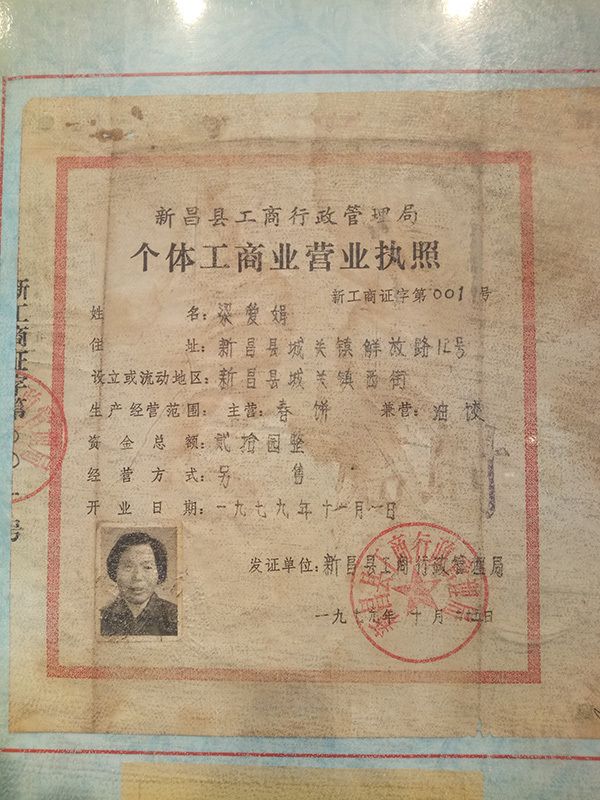 新昌县工商行政管理局
个体工商业营业执照
新工商证字第001号
姓名：梁爱娟
住址：新昌县城关镇解放路12号
设立或流动地区：新昌县城关镇西街
生产经营范围：主营：春饼 兼营：油
资金总额：贰拾圆整
经营方式：另售
开业日期：一九七九年十一月一日
发证单位：新昌县工商行政管理局
一九七九年十月 日
新昌县工商行政管理局
新工商证字第〇〇一号